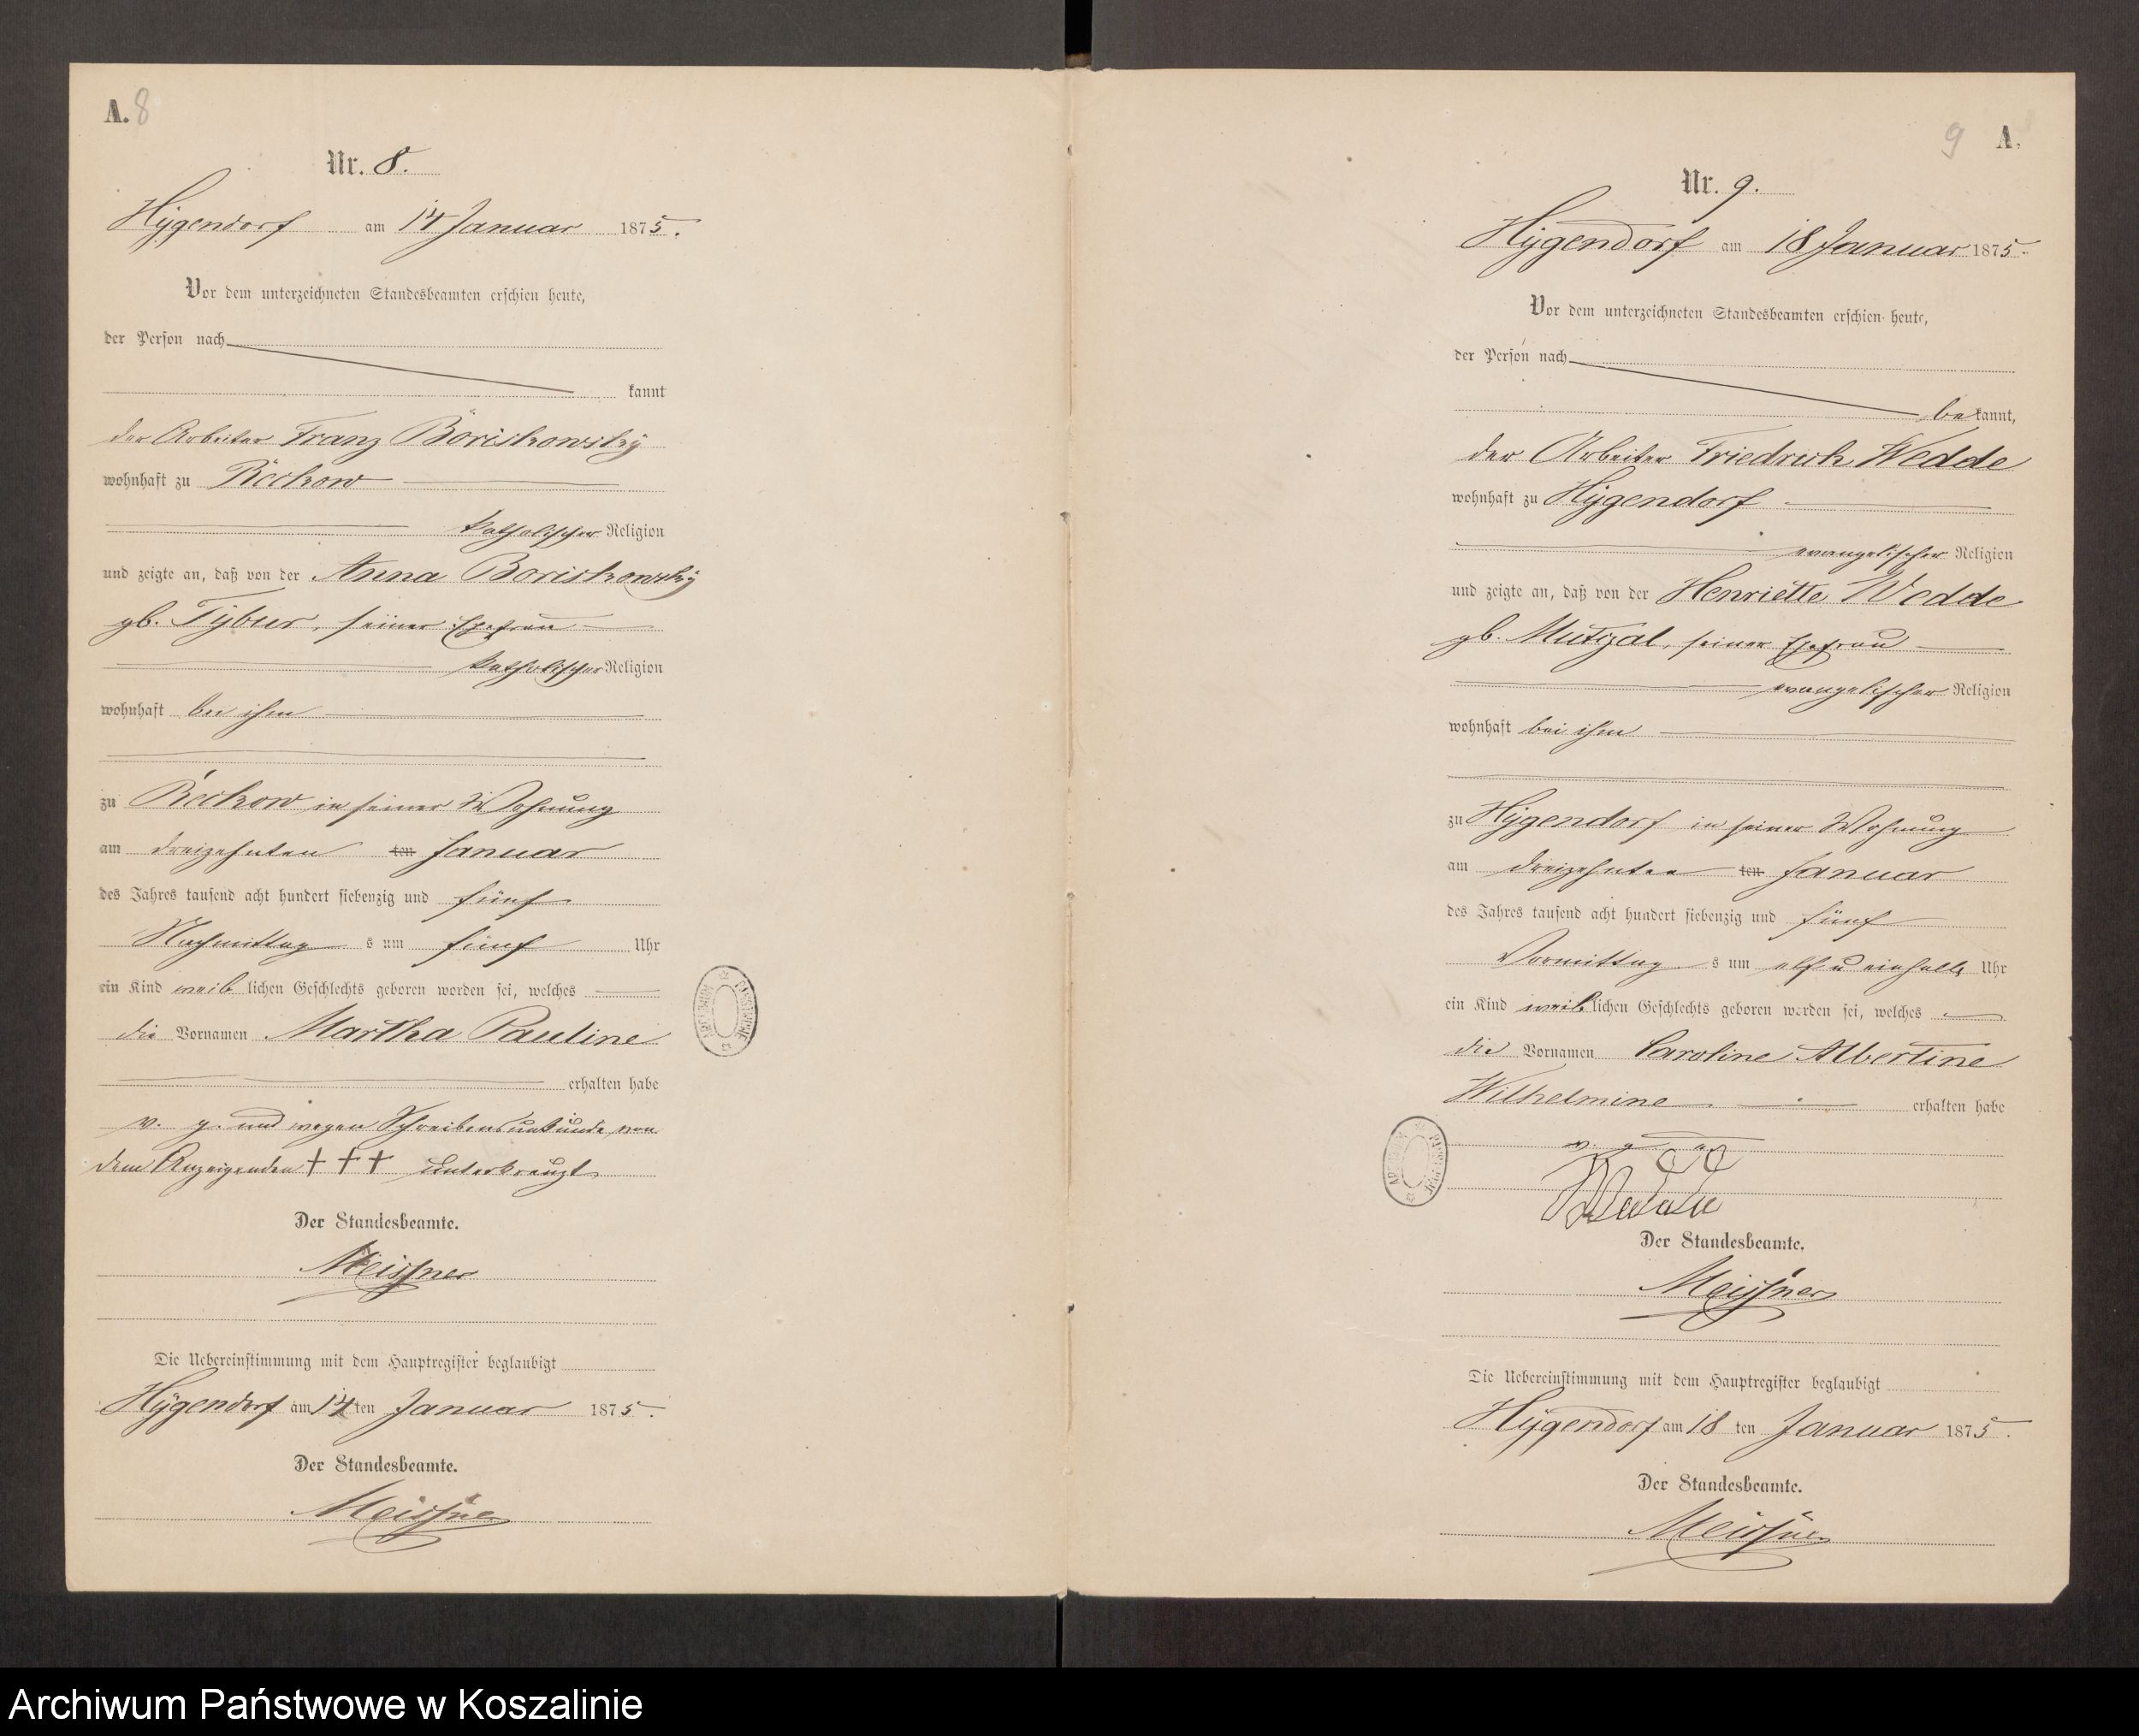 A. 8
Nr. 8.
Hÿgendorf am 14 Januar 1875.
Vor dem unterzeichneten Standesbeamten erschien heute,
der Person nach
kannt
der Arbeiter Franz Boriskowsky
wohnhaft zu Beckow
katholischer Religion
und zeigte an, daß von der Anna Boriskowsky
gb. Tybur, seiner Ehefrau
katholischer Religion
wohnhaft bei ihm
zu Beckow in seiner Wohnung
am dreizehnten ten Januar
des Jahres tausend acht hundert siebenzig und fünf
Nachmittag s um fünf Uhr
ein Kind weib lichen Geschlechts geboren worden sei, welches
die Vornamen Martha Pauline
erhalten habe
v. g. und wegen Schreibensunkunde von
dem Anzeigenden +++ unterkreuzt
Der Standesbeamte.
Meissner
Die Uebereinstimmung mit dem Hauptregister beglaubigt
Hÿgendorf am 14 ten Januar 1875.
Der Standesbeamte.
Meissner
ARCHIWUM PAŃSTWOWE
9 A.
Nr. 9.
Hÿgendorf am 18 Januar 1875.
Vor dem unterzeichneten Standesbeamten erschien heute,
der Person nach
be kannt,
der Arbeiter Friedrich Wedde
wohnhaft zu Hÿgendorf
evangelischer Religion
und zeigte an, daß von der Henriette Wedde
gb. Mutzal, seiner Ehefrau
evangelischer Religion
wohnhaft bei ihm
zu Hÿgendorf in seiner Wohnung
am dreizehnten ten Januar
des Jahres tausend acht hundert siebenzig und fünf
Vormittag s um elf u einhalb Uhr
ein Kind weib lichen Geschlechts geboren worden sei, welches
die Vornamen Caroline Albertine
Wilhelmine erhalten habe
v. g. u.
Wedde
Der Standesbeamte.
Meissner
Die Uebereinstimmung mit dem Hauptregister beglaubigt
Hÿgendorf am 18 ten Januar 1875.
Der Standesbeamte.
Meissner
ARCHIWUM PAŃSTWOWE
Archiwum Państwowe w Koszalinie